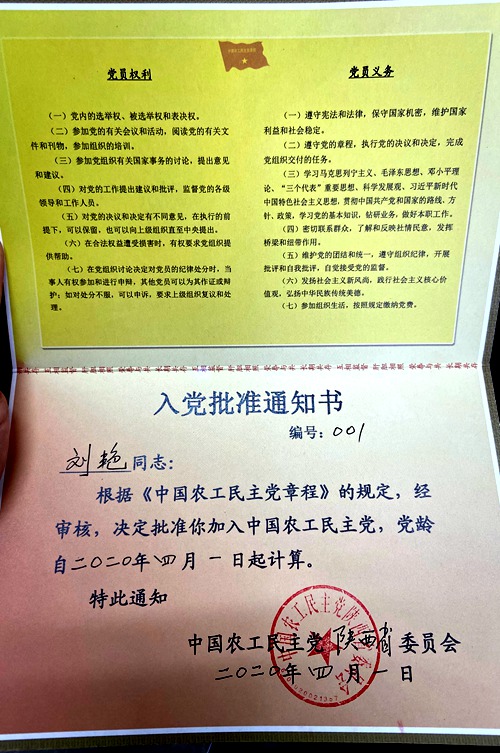 党员权利
（一）党内的选举权、被选举权和表决权。
（二）参加党的有关会议和活动，阅读党的有关文
件和刊物，参加组织的培训。
（三）参加党组织有关国家事务的讨论，提出意见
和建议。
（四）对党的工作提出建议和批评，监督党的各级
领导和工作人员。
（五）对党的决议和决定有不同意见，在执行的前
提下，可以保留，也可以向上级组织直至中央提出。
（六）在合法权益遭受损害时，有权要求党组织提
供帮助。
（七）在党组织讨论决定对党员的纪律处分时，当
事人有权参加和进行申辩，其他党员可以为其作证或辩
护；如对处分不服，可以申诉，要求上级组织复议和处
理。
党员义务
（一）遵守宪法和法律，保守国家机密，维护国家
利益和社会稳定。
（二）遵守党的章程，执行党的决议和决定，完成
党组织交付的任务。
（三）学习马克思列宁主义、毛泽东思想、邓小平理
论、“三个代表”重要思想、科学发展观、习近平新时代
中国特色社会主义思想，贯彻中国共产党和国家的路线、方
针、政策，学习党的基本知识，钻研业务，做好本职工作。
（四）密切联系群众，了解和反映社情民意，发挥
桥梁和纽带作用。
（五）维护党的团结和统一，遵守组织纪律，开展
批评和自我批评，自觉接受党的监督。
（六）发扬社会主义新风尚，践行社会主义核心价
值观，弘扬中华民族传统美德。
（七）参加组织生活，按照规定缴纳党费。
长期共存 互相监督 肝胆相照 荣辱与共 长期共存 互相监督 肝胆相照 荣辱与共 长期共存
入党批准通知书
编号：001
刘艳同志：
根据《中国农工民主党章程》的规定，经
审核，决定批准你加入中国农工民主党，党龄
自二〇二〇年四月一日起计算。
特此通知
中国农工民主党陕西省委员会
二〇二〇年四月一日
中国农工民主党陕西省委员会